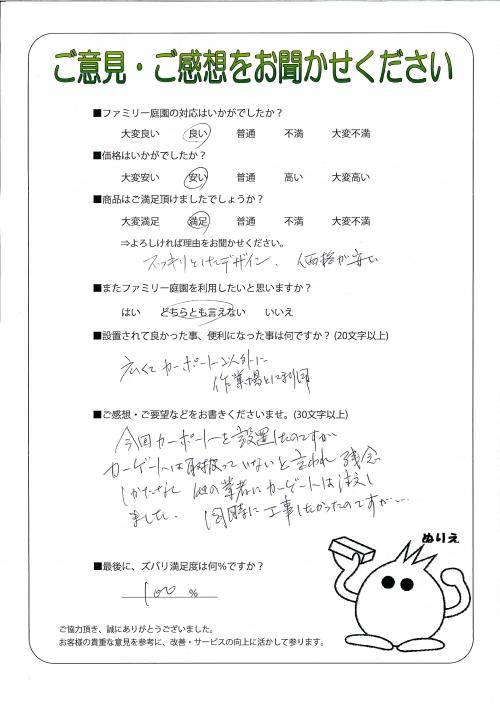 ご意見・ご感想をお聞かせください
■ファミリー庭園の対応はいかがでしたか？
大変良い 良い 普通 不満 大変不満
■価格はいかがでしたか？
大変安い 安い 普通 高い 大変高い
■商品はご満足頂けましたでしょうか？
大変満足 満足 普通 不満 大変不満
⇒よろしければ理由をお聞かせください。
スッキリとしたデザイン、価格が安い
■またファミリー庭園を利用したいと思いますか？
はい どちらとも言えない いいえ
■設置されて良かった事、便利になった事は何ですか？（20文字以上）
広くてカーポート以外に
作業場とに利用
■ご感想・ご要望などをお書きくださいませ。（30文字以上）
今回カーポートを設置したのですが
カーゲートは取扱っていないと言われ残念
しかたなく他の業者にカーゲートは注文し
ました。同時に工事したかったのですが…
■最後に、ズバリ満足度は何％ですか？
100 %
ぬりえ
ご協力頂き、誠にありがとうございました。
お客様の貴重な意見を参考に、改善・サービスの向上に活かして参ります。